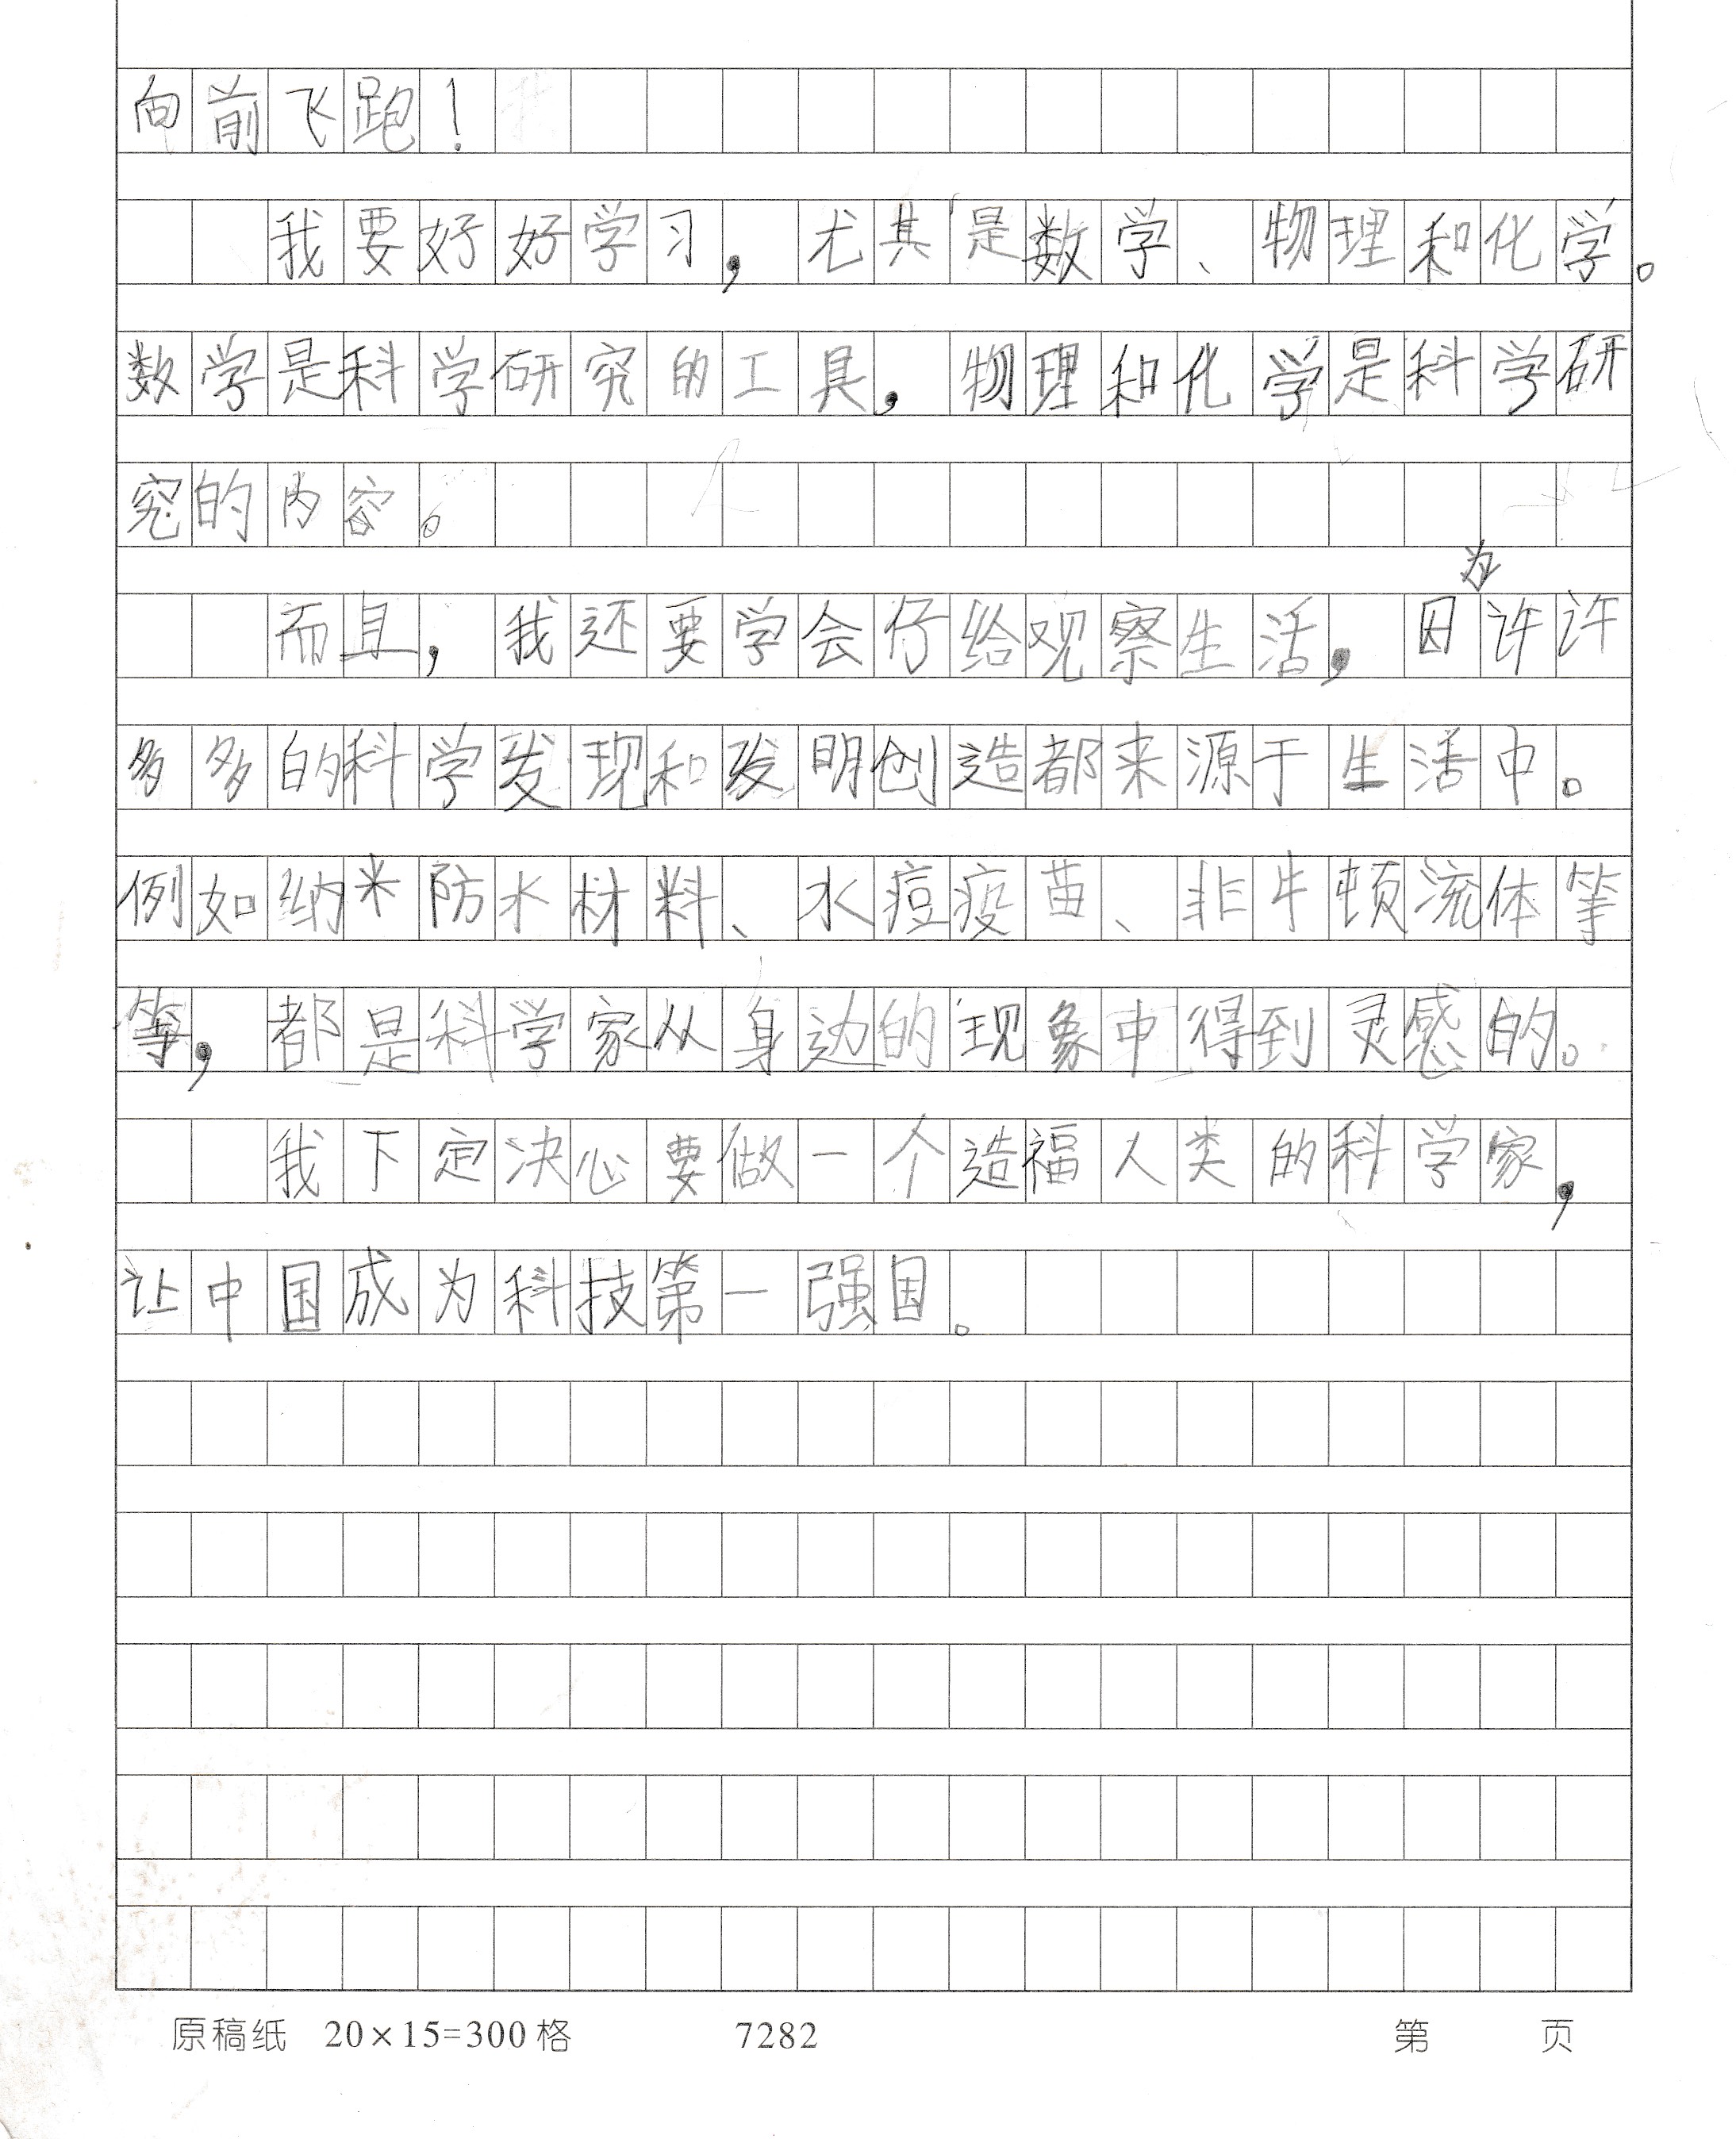 向前飞跑！
我要好好学习，尤其是数学、物理和化学。
数学是科学研究的工具，物理和化学是科学研
究的内容。
而且，我还要学会仔给观察生活，因为许许
多多的科学发现和发明创造都来源于生活中。
例如纳米防水材料、水痘疫苗、非牛顿流体等
等，都是科学家从身边的现象中得到灵感的。
我下定决心要做一个造福人类的科学家，
让中国成为科技第一强国。
原稿纸 20×15=300格 7282 第 页